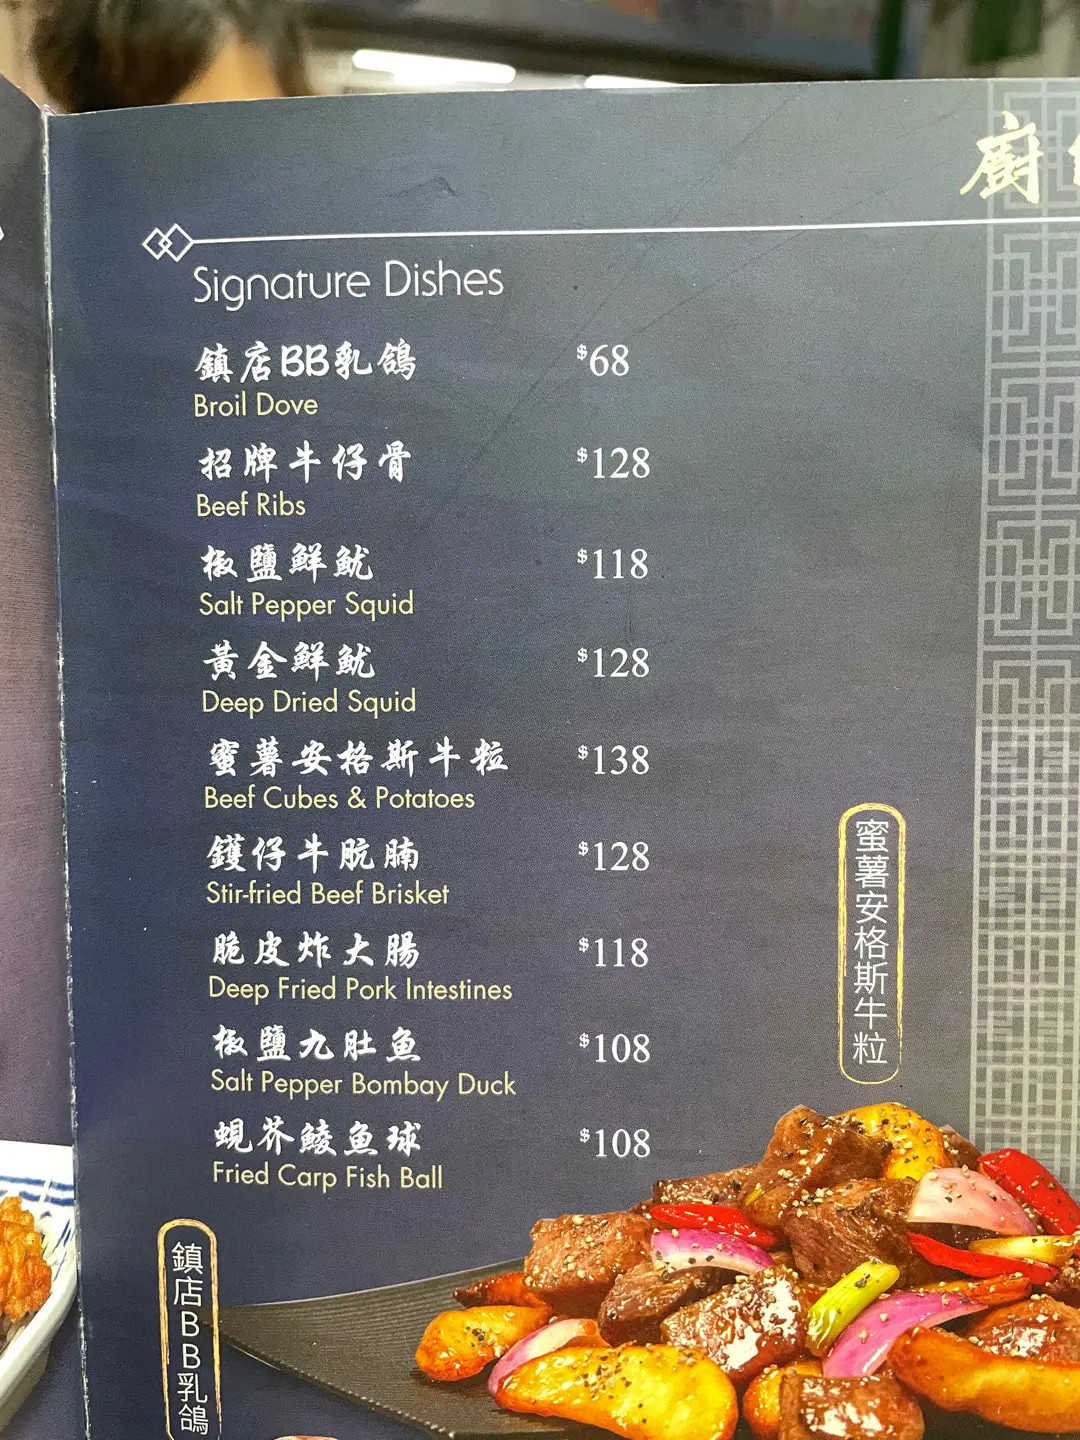 廚
Signature Dishes
鎮店BB乳鴿 $68
Broil Dove
招牌牛仔骨 $128
Beef Ribs
椒鹽鮮魷 $118
Salt Pepper Squid
黃金鮮魷 $128
Deep Dried Squid
蜜薯安格斯牛粒 $138
Beef Cubes & Potatoes
鑊仔牛肮腩 $128
Stir-fried Beef Brisket
脆皮炸大腸 $118
Deep Fried Pork Intestines
椒鹽九肚魚 $108
Salt Pepper Bombay Duck
蜆芥鯪魚球 $108
Fried Carp Fish Ball
蜜薯安格斯牛粒
鎮店BB乳鴿